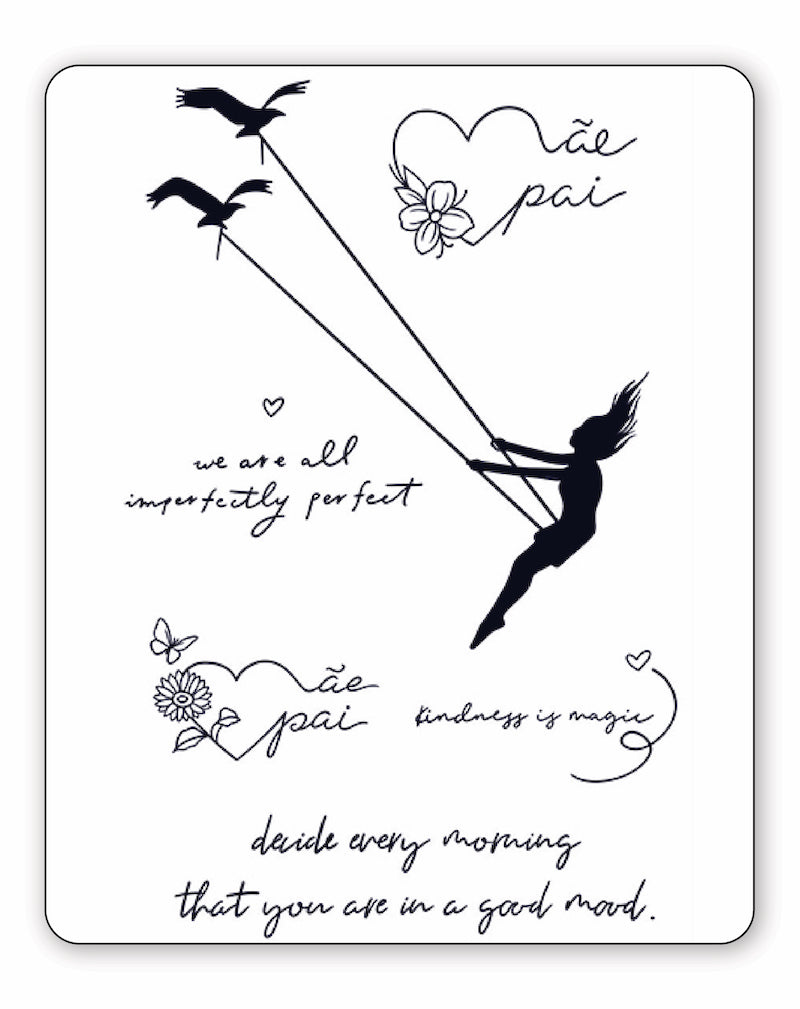 mãe
pai
we are all
imperfectly perfect
mãe
pai
kindness is magic
decide every morning
that you are in a good mood.